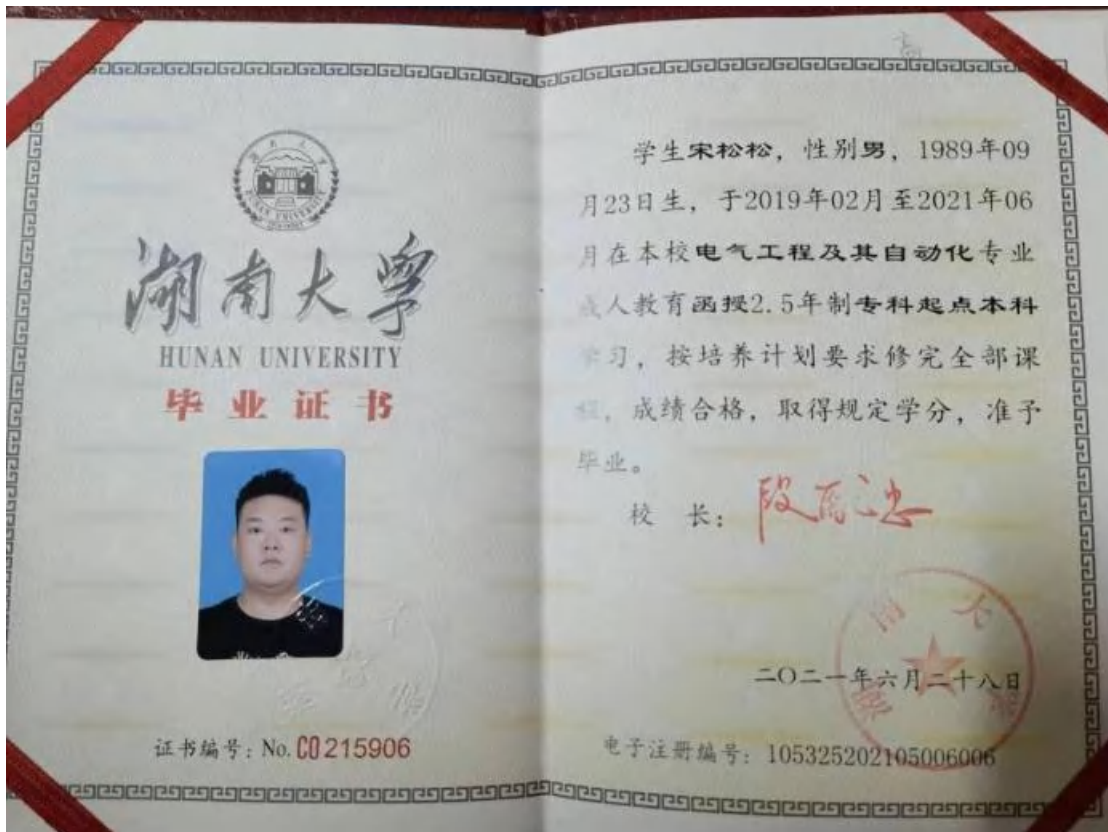 湖南大学
HUNAN UNIVERSITY
HUNAN UNIVERSITY
毕业证书
证书编号：No. C0215906
学生宋松松，性别男，1989年09
月23日生，于2019年02月至2021年06
月在本校电气工程及其自动化专业
成人教育函授2.5年制专科起点本科
学习，按培养计划要求修完全部课
程，成绩合格，取得规定学分，准予
毕业。
校 长：
二〇二一年六月二十八日
电子注册编号：105325202105006006